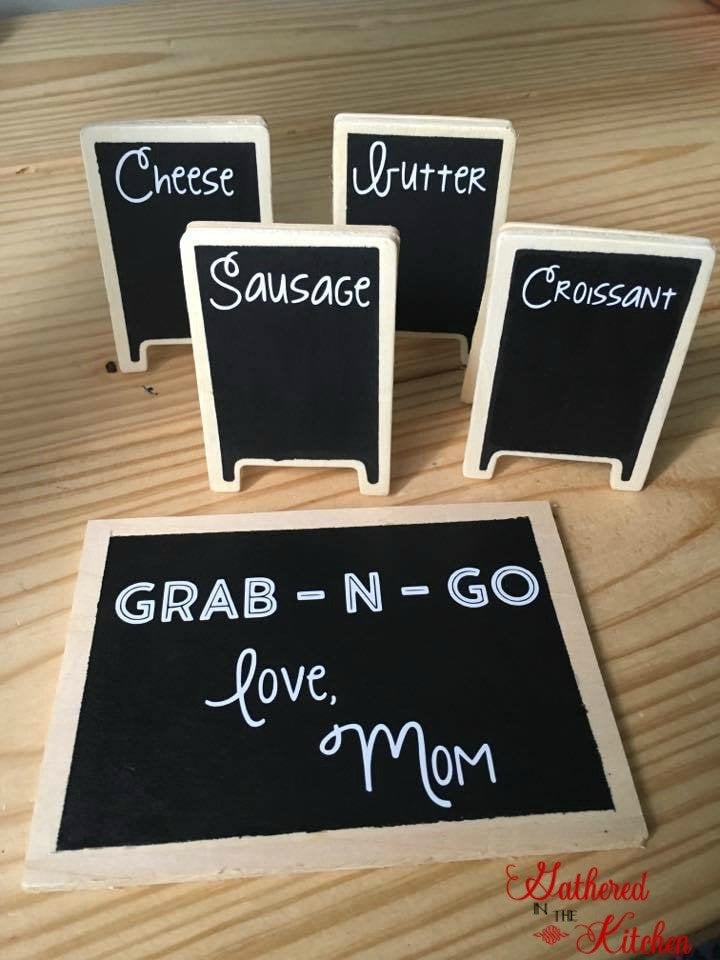 Cheese
Butter
Sausage
Croissant
GRAB - N - GO
love,
Mom
Gathered
IN THE
Kitchen